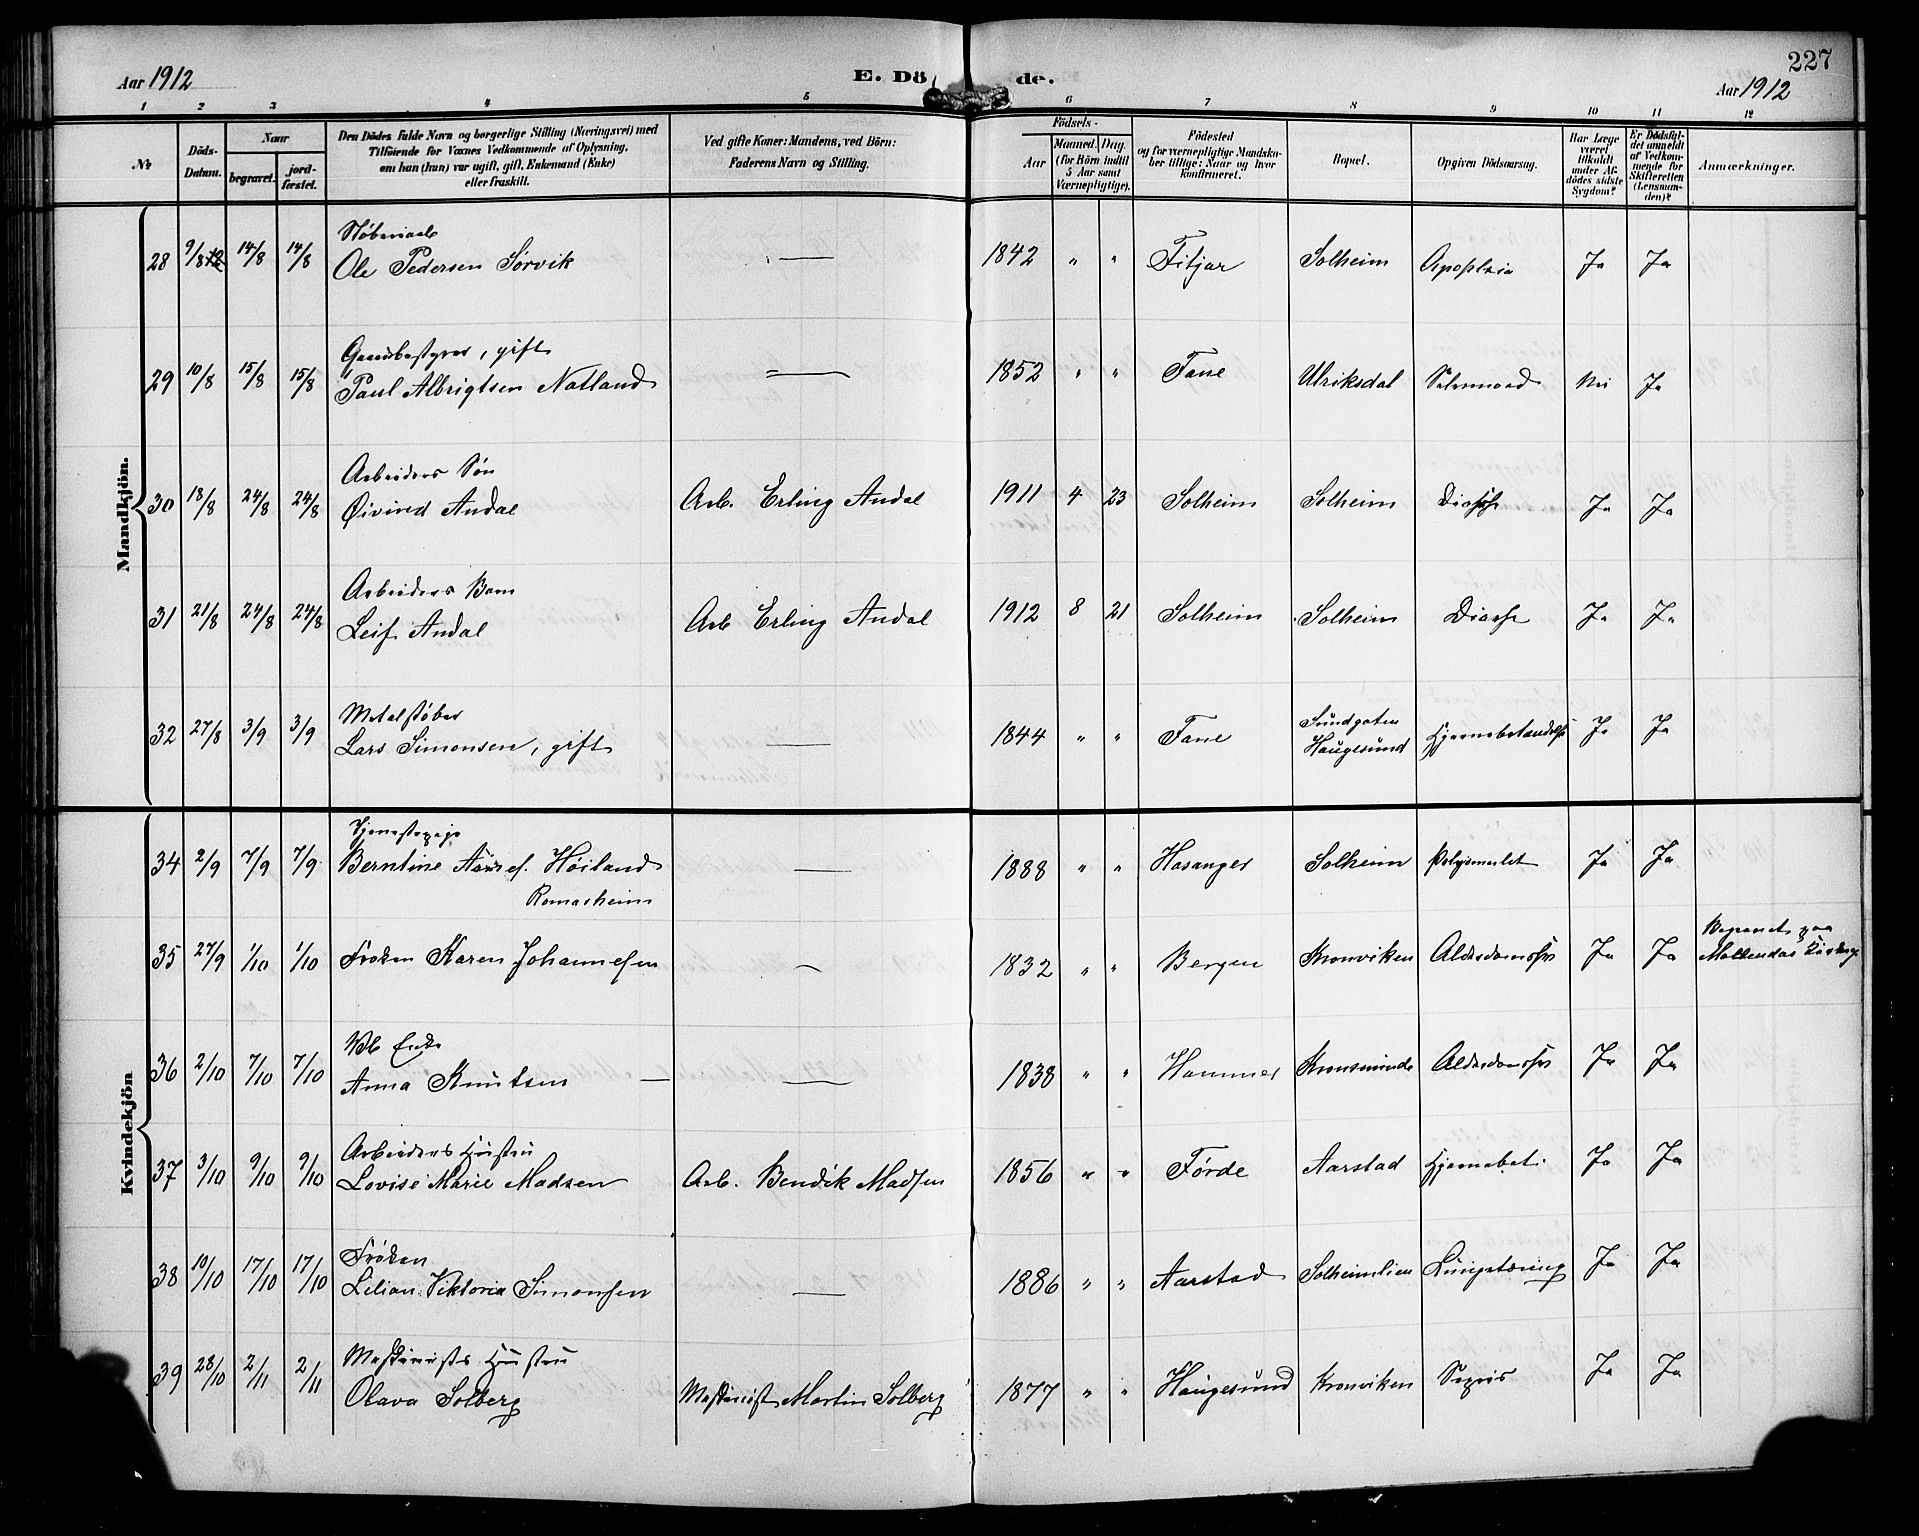 227
Aar 1912
E. Dö de.
Aar 1912
1 2 3 4 5 6 7 8 9 10 11 12
No
Döds-Datum.
Naar
begravet.
jord-fæstet.
Den Dödes fulde Navn og borgerlige Stilling (Næringsvei) med
Tilföiende for Voxnes Vedkommende af Oplysning,
om han (hun) var ugift, gift, Enkemand (Enke)
eller fraskilt.
Ved gifte Koner: Mandens, ved Börn:
Faderens Navn og Stilling.
Födsels-
Aar
Maaned. Dag.
(for Börn indtil
5 Aar samt
Værnepligtige).
Födested
og for værnepligtige Mandska-
ber tillige: Naar og hvor
konfirmeret.
Bopæl.
Opgiven Dödsaarsag.
Har Læge
været
tilkaldt
under Af-
dödes sidste
Sygdom?
Er Dödsfal-
det anmeldt
af Vedkom-
mende for
Skifteretten
(Lensman-
den)?
Anmærkninger.
Mandkjön.
28 9/8 14/8 14/8 Ole Pedersen Sørvik — 1842 " " Fitjar Solheim Apoplexia Ja Ja
Gaardbestyrer, gift
29 10/8 15/8 15/8 Paul Albrigtsen Natland — 1852 " " Fane Ulriksdal Selvmord Nei Ja
Arbeiders Søn
30 18/8 24/8 24/8 Øivind Andal Arb. Erling Andal 1911 4 23 Solheim Solheim Ja Ja
Arbeiders Barn
31 21/8 24/8 24/8 Leif Andal Arb Erling Andal 1912 8 21 Solheim Solheim Ja Ja
Metalstøber
32 27/8 3/9 3/9 Lars Simonsen, gift — 1844 " " Fane Sundgaten
Haugesund Ja Ja
Kvindekjön
Tjenestepige
34 2/9 7/9 7/9 Berntine Høiland — 1888 " " Hosanger Solheim Ja Ja
Romarheim
35 27/9 1/10 1/10 Frøken Karen Johannesen — 1832 " " Bergen Kronviken Ja Ja Begravet paa
Møllendas Kirkeg
Enke
36 2/10 7/10 7/10 Anna Knutsen — — 1838 " " Hammer Kronsminde Ja Ja
Arbeiders Hustru
37 3/10 9/10 9/10 Lovise Marie Madsen Arb. Bendik Madsen 1856 " " Førde Aarstad Ja Ja
Frøken
38 10/10 17/10 17/10 Lilian Viktoria Simonsen — 1886 " " Aarstad Solheimlien Lungetæring Ja Ja
Maskinists Hustru
39 28/10 2/11 2/11 Olava Solberg Maskinist Martin Solberg 1877 " " Haugesund Kronviken Sepsis Ja Ja